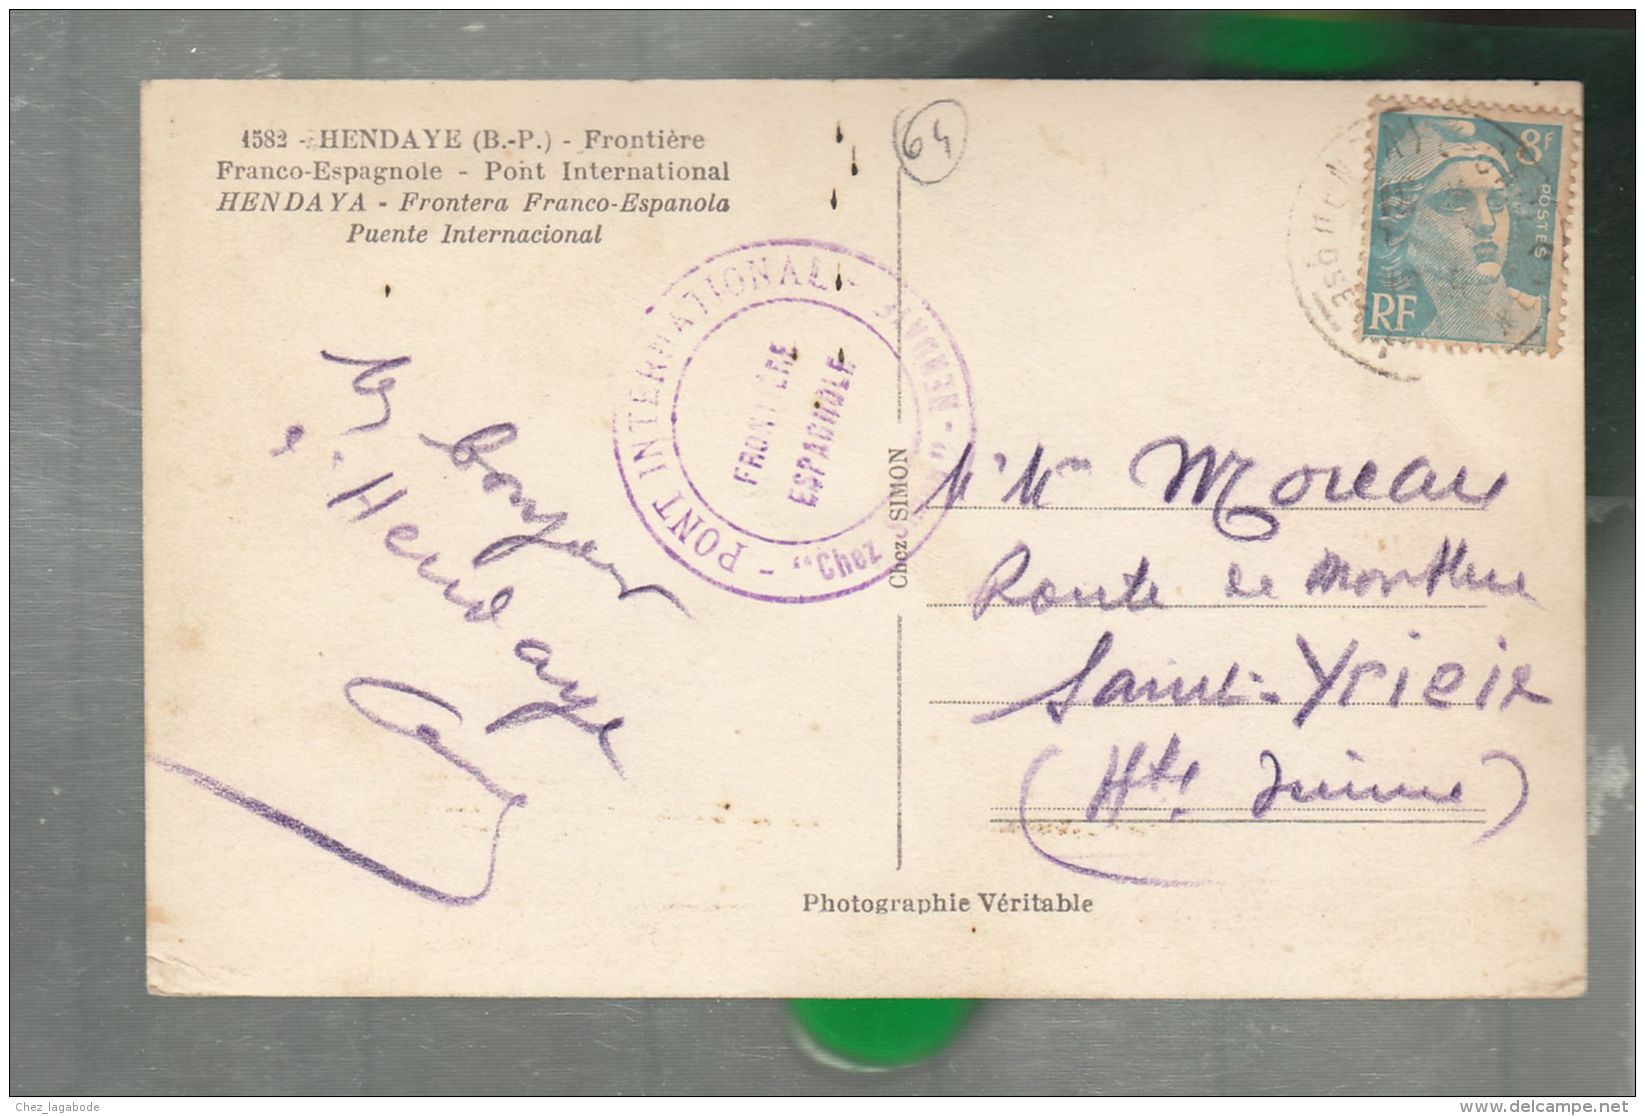 1582 - HENDAYE (B.-P.) - Frontière
Franco-Espagnole - Pont International
HENDAYA - Frontera Franco-Espanola
Puente Internacional
64
8F
POSTES
RF
- PONT INTERNATIONAL - HENDAYE - "Chez
FRONTIERE
ESPAGNOLE
bonjour
d'Hendaye
Chez SIMON
Moreau
Route de
Saint-Yrieix
(Hte Vienne)
Photographie Véritable
Chez_lagabode
delcampe.net